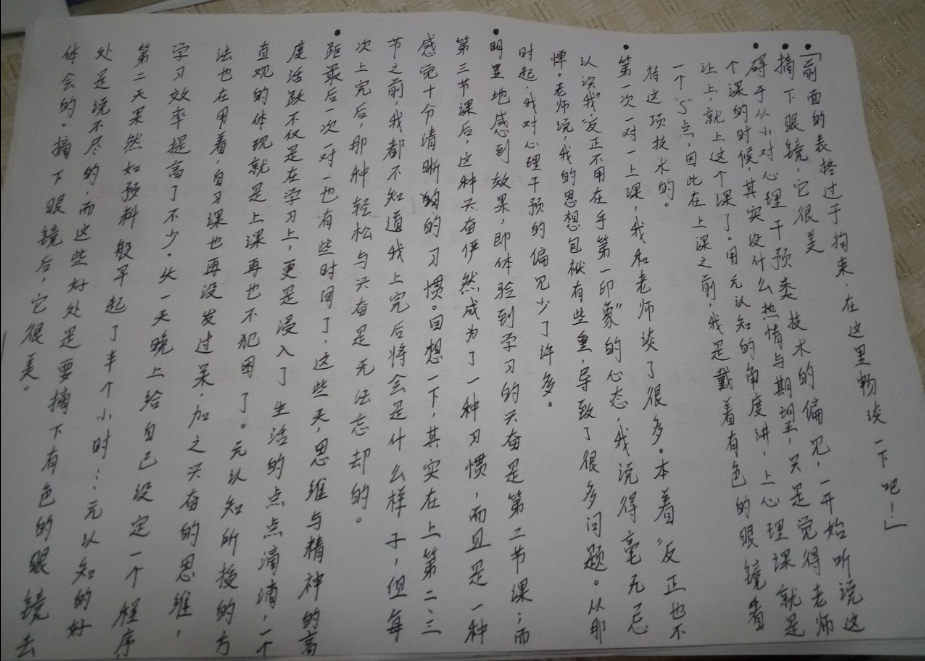 「前面的表格过于拘束,在这里畅谈一下吧!」
摘下眼镜,它很美
碍于从小对心理干预类技术的偏见,一开始听说这
个课的时候,其实没什么热情与期望,只是觉得老师
让上,就上这个课了。用元认知的角度讲,上心理课就是
一个“S”点,因此在上课之前,我是戴着有色的眼镜看
待这项技术的。
第一次一对一上课,我和老师谈了很多。本着“反正也不
认识我”“反正不用在乎第一印象”的心态,我说得毫无忌
惮。老师说,我的思想包袱有些重,导致了很多问题。从那
时起,我对心理干预的偏见少了许多。
明显地感到效果,即体验到学习的兴奋是第二节课,而
第三节课后,这种兴奋俨然成为了一种习惯,而且是一种
感觉十分清晰的的习惯。回想一下,其实在上第二、三
节之前,我都不知道我上完后将会是什么样子,但每
次上完后,那种轻松与兴奋是无法忘却的。
距最后一次一对一也有些时间了,这些天,思维与精神的高
度活跃不仅是在学习上,更是浸入了生活的点点滴滴,一个
直观的体现就是上课再也不犯困了。元认知所授的方
法也在用着,自习课也再没发过呆,加之兴奋的思维,
学习效率提高了不少。头一天晚上给自己设定一个程序
第二天果然如预料般早起了半个小时…元认知的好
处是说不尽的,而这些好处是要摘下有色的眼镜去
体会的。摘下眼镜后,它很美。